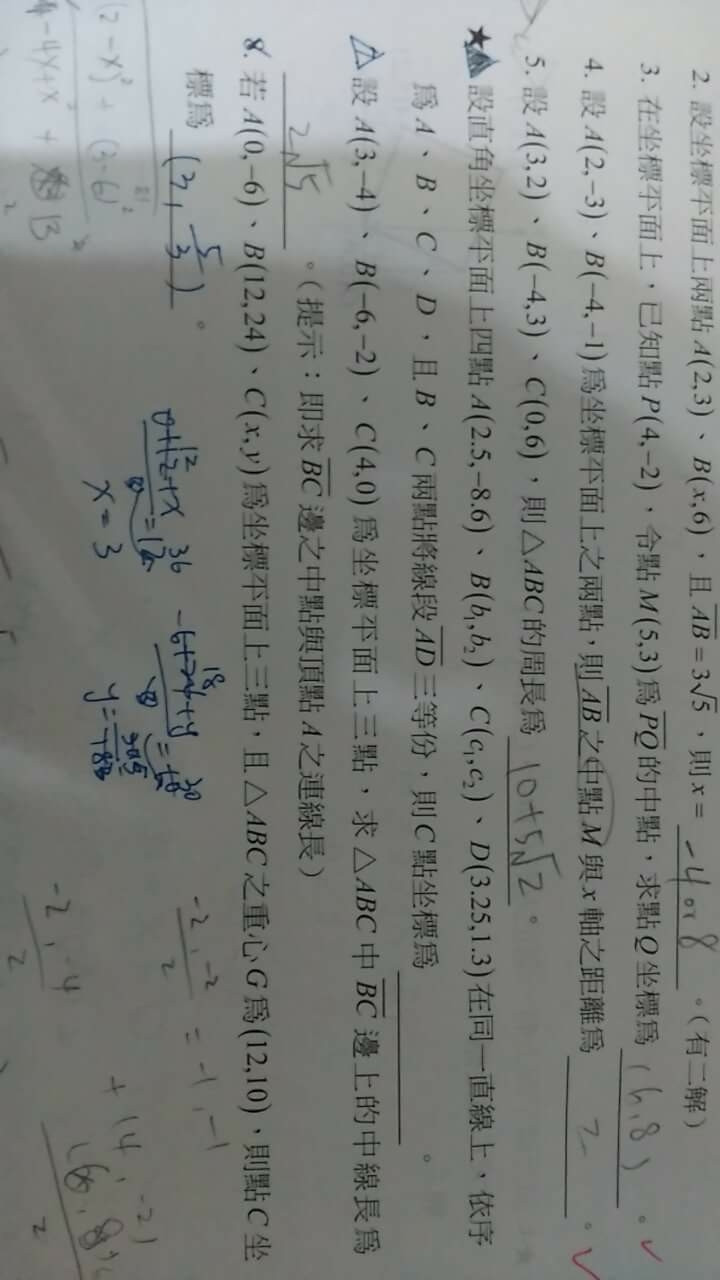 2. 設坐標平面上兩點 A(2,3)、B(x,6),且 AB = 3√5,則 x = -4 or 8 。(有二解)
3. 在坐標平面上,已知點 P(4,-2),令點 M(5,3) 為 PQ 的中點,求點 Q 坐標為 (6,8) 。✓
4. 設 A(2,-3)、B(-4,-1) 為坐標平面上之兩點,則 AB 之中點 M 與 x 軸之距離為 2 。✓
5. 設 A(3,2)、B(-4,3)、C(0,6),則 △ABC 的周長為 10+5√2 。
★ 設直角坐標平面上四點 A(2.5,-8.6)、B(b₁,b₂)、C(c₁,c₂)、D(3.25,1.3) 在同一直線上,依序
為 A、B、C、D,且 B、C 兩點將線段 AD 三等份,則 C 點坐標為 。
設 A(3,-4)、B(-6,-2)、C(4,0) 為坐標平面上三點,求 △ABC 中 BC 邊上的中線長為
2√5 。(提示:即求 BC 邊之中點與頂點 A 之連線長)
8. 若 A(0,-6)、B(12,24)、C(x,y) 為坐標平面上三點,且 △ABC 之重心 G 為 (12,10),則點 C 坐
標為 (3, 5/3) 。
0+12+x
36
= 12
x = 3
-6+24+y
18
30
y =
-2, -2
2
= -1, -1
(2-x)² + (3-6)²
4-4x+x² +
13
-2, -4
2
+ (4, -2)
2